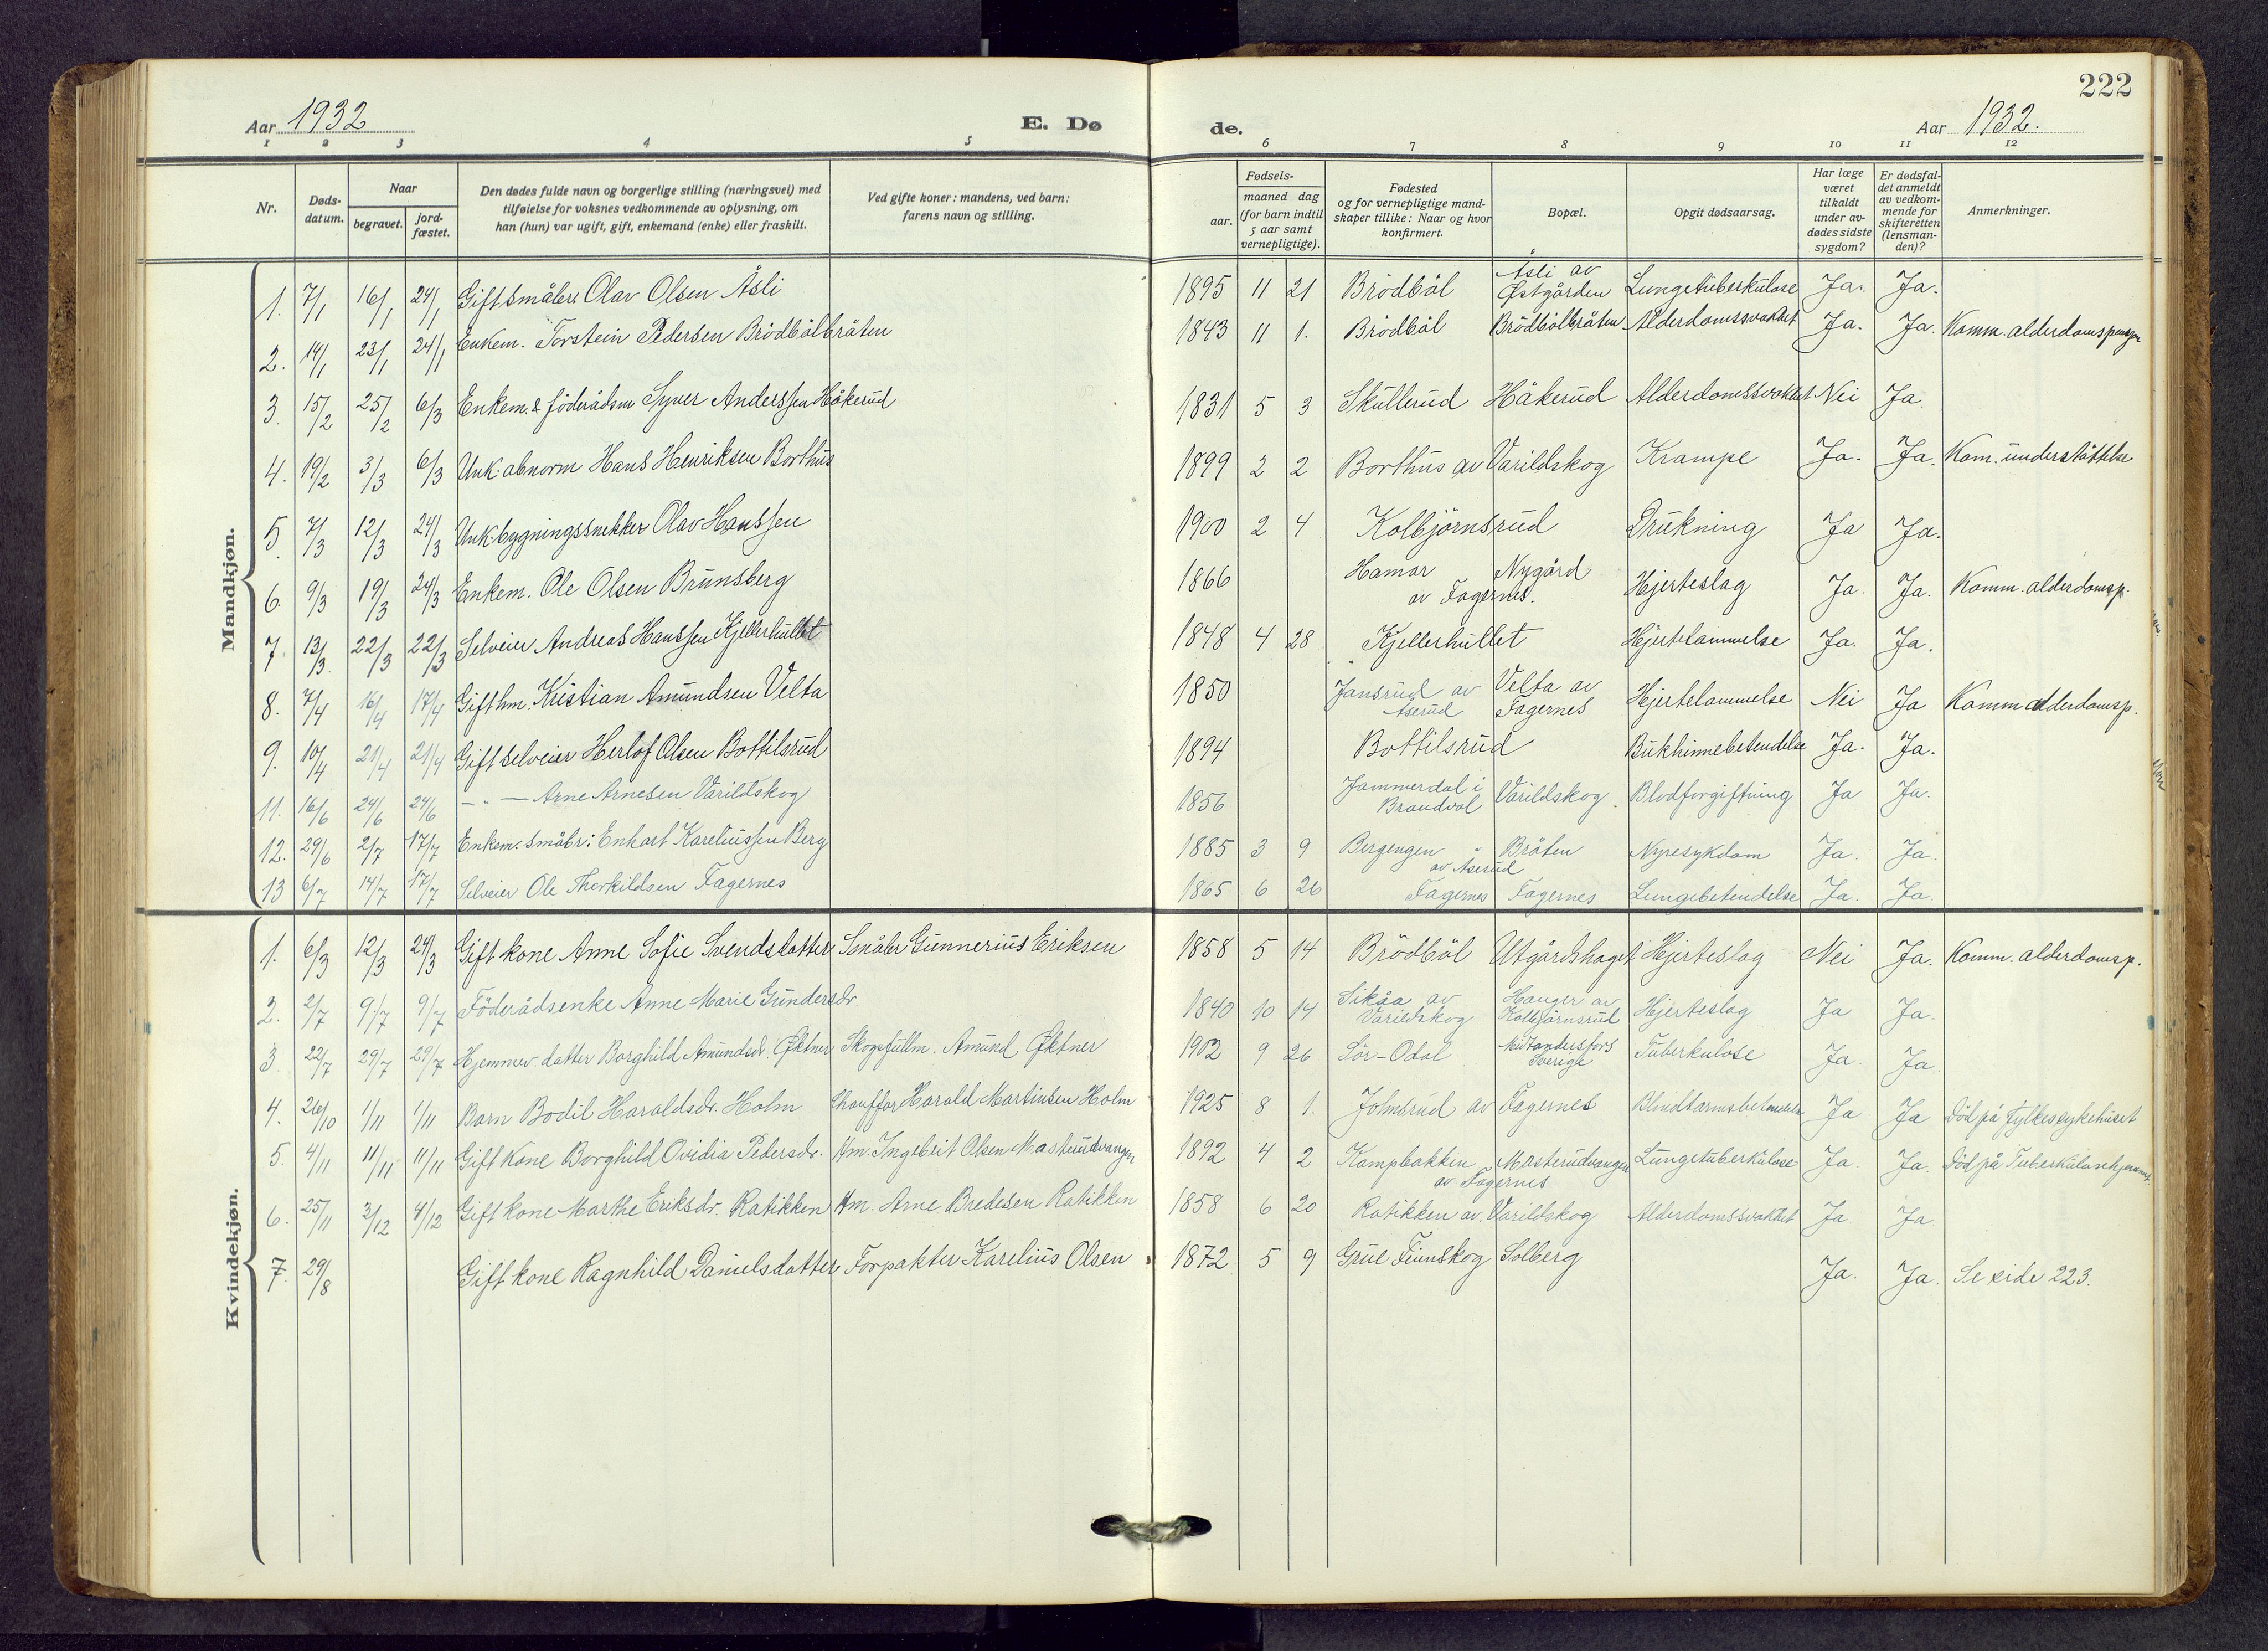 222
Aar 1932
E. Dø
de.
Aar 1932.
1 2 3 4 5 6 7 8 9 10 11 12
Nr.
Døds-
datum.
Naar
begravet.
jord-
fæstet.
Den dødes fulde navn og borgerlige stilling (næringsvei) med
tilføielse for voksnes vedkommende av oplysning, om
han (hun) var ugift, gift, enkemand (enke) eller fraskilt.
Ved gifte koner: mandens, ved barn:
farens navn og stilling.
Fødsels-
aar.
maaned dag
(for barn indtil
5 aar samt
vernepligtige).
Fødested
og for vernepligtige mand-
skaper tillike: Naar og hvor
konfirmert.
Bopæl.
Opgit dødsaarsag.
Har læge
været
tilkaldt
under av-
dødes sidste
sygdom?
Er dødsfal-
det anmeldt
av vedkom-
mende for
skifteretten
(lensman-
den)?
Anmerkninger.
Mandkjøn.
1. 7/1 16/1 24/1 Gift småbr. Olav Olsen Åsli 1895 11 21 Brödböl Åsli av Østgården Lungetuberkulose Ja. Ja.
2. 14/1 23/1 24/1 Enkem. Torstein Pedersen Brödbölbråten 1843 11 1. Brödböl Brödbölbråten Alderdomssvakhet Ja. Ja. Komm. alderdomspensjon
3. 15/2 25/2 6/3 Enkem. & föderådsm Syver Anderssen Håkerud 1831 5 3 Skullerud Håkerud Alderdomssvakhet Nei Ja
4. 19/2 3/3 6/3 Unk. abnorm Hans Henriksen Borthus 1899 2 2 Borthus av Varildskog Krampe Ja. Ja. Kom. understöttelse
5. 7/3 12/3 24/3 Unk. bygningssnekker Olav Hanssen 1900 2 4 Kolbjörnsrud Drukning Ja Ja.
6. 9/3 19/3 24/3 Enkem. Ole Olsen Brunsberg 1866 Hamar Nygård av Fagernes. Hjerteslag Ja. Ja. Komm. alderdomsp.
7. 13/3 22/3 22/3 Selveier Andreas Hanssen Kjellerhullet 1848 4 28 Kjellerhullet Hjertelammelse Ja. Ja.
8. 7/4 16/4 17/4 Gift hm. Kristian Amundsen Velta 1850 Jansrud av Åserud Velta av Fagernes Hjertelammelse Nei Ja Komm alderdomsp.
9. 10/4 21/4 21/4 Gift selveier Herlof Olsen Bottilsrud 1894 Bottilsrud Bukhinnebetendelse Ja. Ja.
11. 16/6 24/6 24/6 — " — Arne Arnesen Varildskog 1856 Jammerdal i Brandval Varildskog. Blodforgiftning Ja Ja.
12. 29/6 2/7 17/7 Enkem. småbr. Enhart Kareliussen Berg 1885 3 9 Bergengen Bråten av Åserud Nyresykdom Ja. Ja.
13 6/7 14/7 17/7 Selveier Ole Thorkildsen Fagernes 1865 6 26 Fagernes Fagernes Lungebetendelse Ja. Ja.
Kvindekjøn.
1. 6/3 12/3 24/3 Gift kone Anne Sofie Svendsdatter Småbr Gunnerius Eriksen 1858 5 14 Brödböl Utgårdshaget Hjerteslag Nei Ja. Komm. alderdomsp.
2. 2/7 9/7 9/7 Föderådsenke Anne Marie Gundersdr. 1840 10 14 Sikåa av Varildskog Hauger av Kolbjörnsrud Hjerteslag Ja Ja.
3. 22/7 29/7 29/7 Hjemmev. datter Borghild Amundsdr. Øktner Skogsfullm. Amund Øktner 1902 9 26 Sör-Odal Mitandersfors Sverige Tuberkulose Ja. Ja.
4. 26/10 1/11 1/11 Barn Bodil Haraldsdr. Holm Chauffør Harald Martinsen Holm 1925 8 1. Johnsrud av Fagernes Blindtarmsbetendelse Ja Ja Död på Fylkessykehuset
5. 4/11 11/11 11/11 Gift Kone Borghild Ovidia Pedersdr. Hm. Ingebrit Olsen Masterudvangen 1892 4 2 Kampbakken Masterudvangen av Fagernes Lungetuberkulose Ja. Ja. Död på Tuberkulosehjemmet.
6. 25/11 3/12 4/12 Gift kone Marthe Eriksdr. Ratikken Hm. Arne Bredesen Ratikken 1858 6 20 Ratikken av. Varildskog Alderdomssvakhet Ja. Ja.
7. 29/8 Gift kone Ragnhild Danielsdatter Forpakter Karelius Olsen 1872 5 9 Grue Finnskog Solberg Ja. Ja. Se side 223.